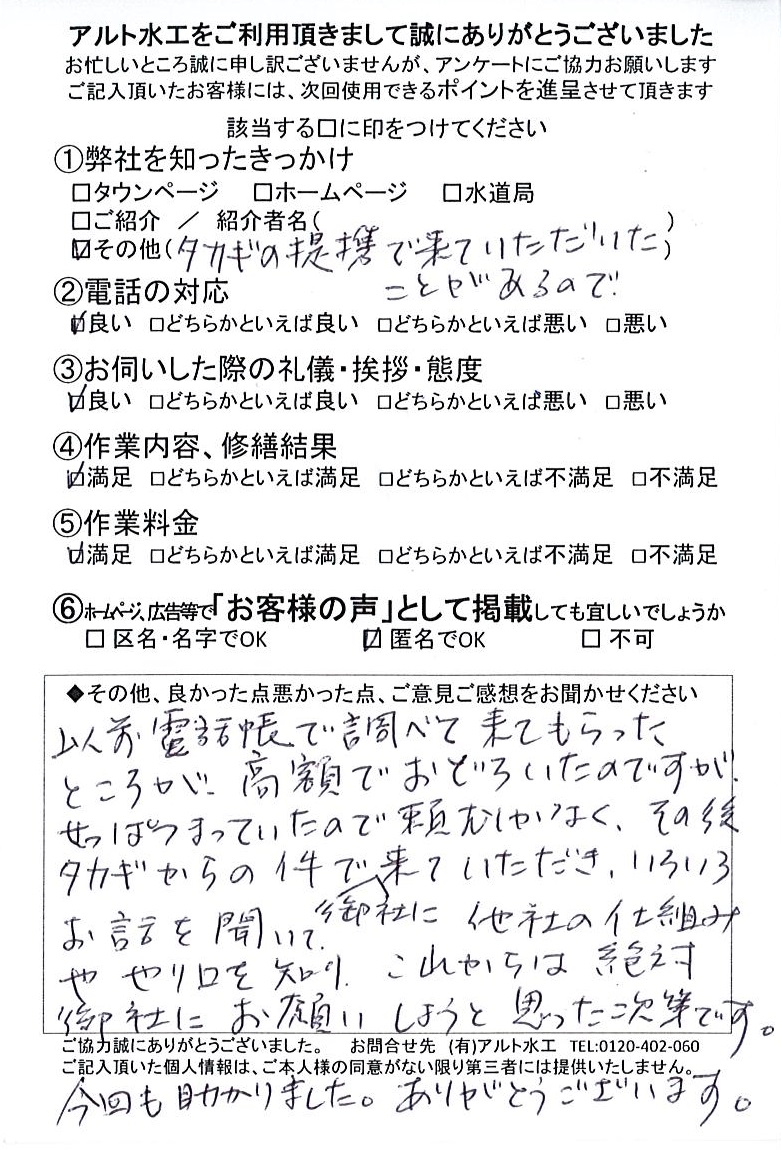 アルト水工をご利用頂きまして誠にありがとうございました
お忙しいところ誠に申し訳ございませんが、アンケートにご協力お願いします
ご記入頂いたお客様には、次回使用できるポイントを進呈させて頂きます
該当する□に印をつけてください
①弊社を知ったきっかけ
□タウンページ □ホームページ □水道局
□ご紹介 / 紹介者名( )
☑その他(タカギの提携で来ていただいた)
ことがあるので
②電話の対応
☑良い □どちらかといえば良い □どちらかといえば悪い □悪い
③お伺いした際の礼儀・挨拶・態度
☑良い □どちらかといえば良い □どちらかといえば悪い □悪い
④作業内容、修繕結果
☑満足 □どちらかといえば満足 □どちらかといえば不満足 □不満足
⑤作業料金
☑満足 □どちらかといえば満足 □どちらかといえば不満足 □不満足
⑥ホームページ、広告等で「お客様の声」として掲載しても宜しいでしょうか
□ 区名・名字でOK ☑ 匿名でOK □ 不可
◆その他、良かった点悪かった点、ご意見ご感想をお聞かせください
以前電話帳で調べて来てもらった
ところが、高額でおどろいたのですが、
せっぱつまっていたので頼むしかなく、その後
タカギからの件で御社に来ていただき、いろいろ
お話を聞いて、他社の仕組み
ややり口を知り、これからは絶対
御社にお願いしようと思った次第です。
ご協力誠にありがとうございました。 お問合せ先 (有)アルト水工 TEL:0120-402-060
ご記入頂いた個人情報は、ご本人様の同意がない限り第三者には提供いたしません。
今回も助かりました。ありがとうございます。